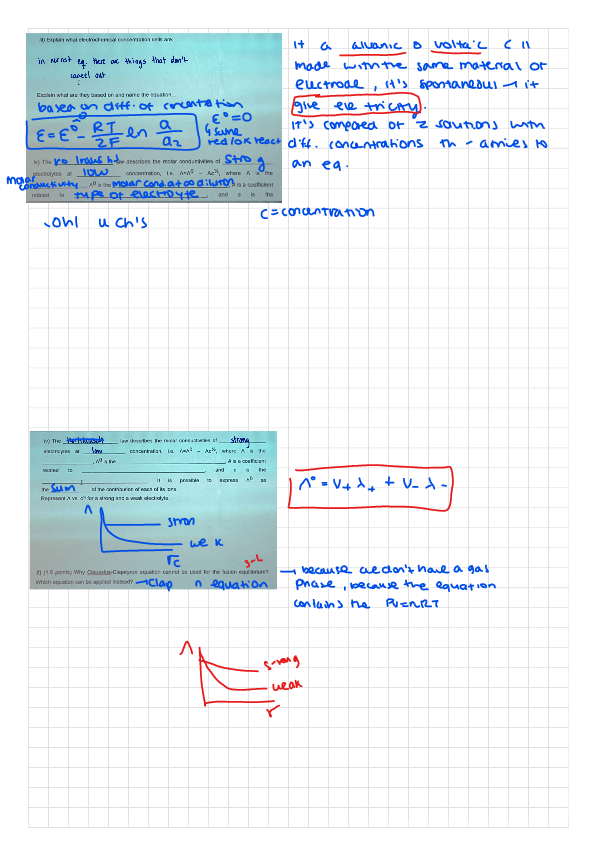 iii) Explain what electrochemical concentration cells are.
in nernst eq. there are things that don't
cancel out
Explain what are they based on and name the equation...
based on diff. of concentration
ε = ε° - RT/2F ln a/a₂
ε° = 0
same
redox react
iv) The law describes the molar conductivities of strong
electrolytes at low concentration, i.e. Λ=Λ⁰ - Ac^½, where Λ is the
molar conductivity, Λ⁰ is the molar cond at ∞ dilution, A is a coefficient
related to type of electrolyte, and c is the
It a alvanic o voltaic c ll
made with the same material of
electrode, it's spontaneous → it
give ele tricity.
It's composed of 2 solutions with
diff. concentrations th - arrives to
an eq.
c = concentration
.Ohl u ch's
iv) The law describes the molar conductivities of strong
electrolytes at low concentration, i.e. Λ=Λ⁰ - Ac^½, where Λ is the
, Λ⁰ is the , A is a coefficient
related to , and c is the
. It is possible to express Λ⁰ as
the sum of the contribution of each of its ions.
Represent Λ vs. c^½ for a strong and a weak electrolyte.
Λ
stron
we k
√c
Λ° = V₊ λ₊ + V₋ λ₋
s-L
3) (1.5 points) Why Clausius-Clapeyron equation cannot be used for the fusion equilibrium?
Which equation can be applied instead? → Clap n equation
→ because we don't have a gas
phase, because the equation
contains the PV=nRT
Λ
s-rong
weak
r